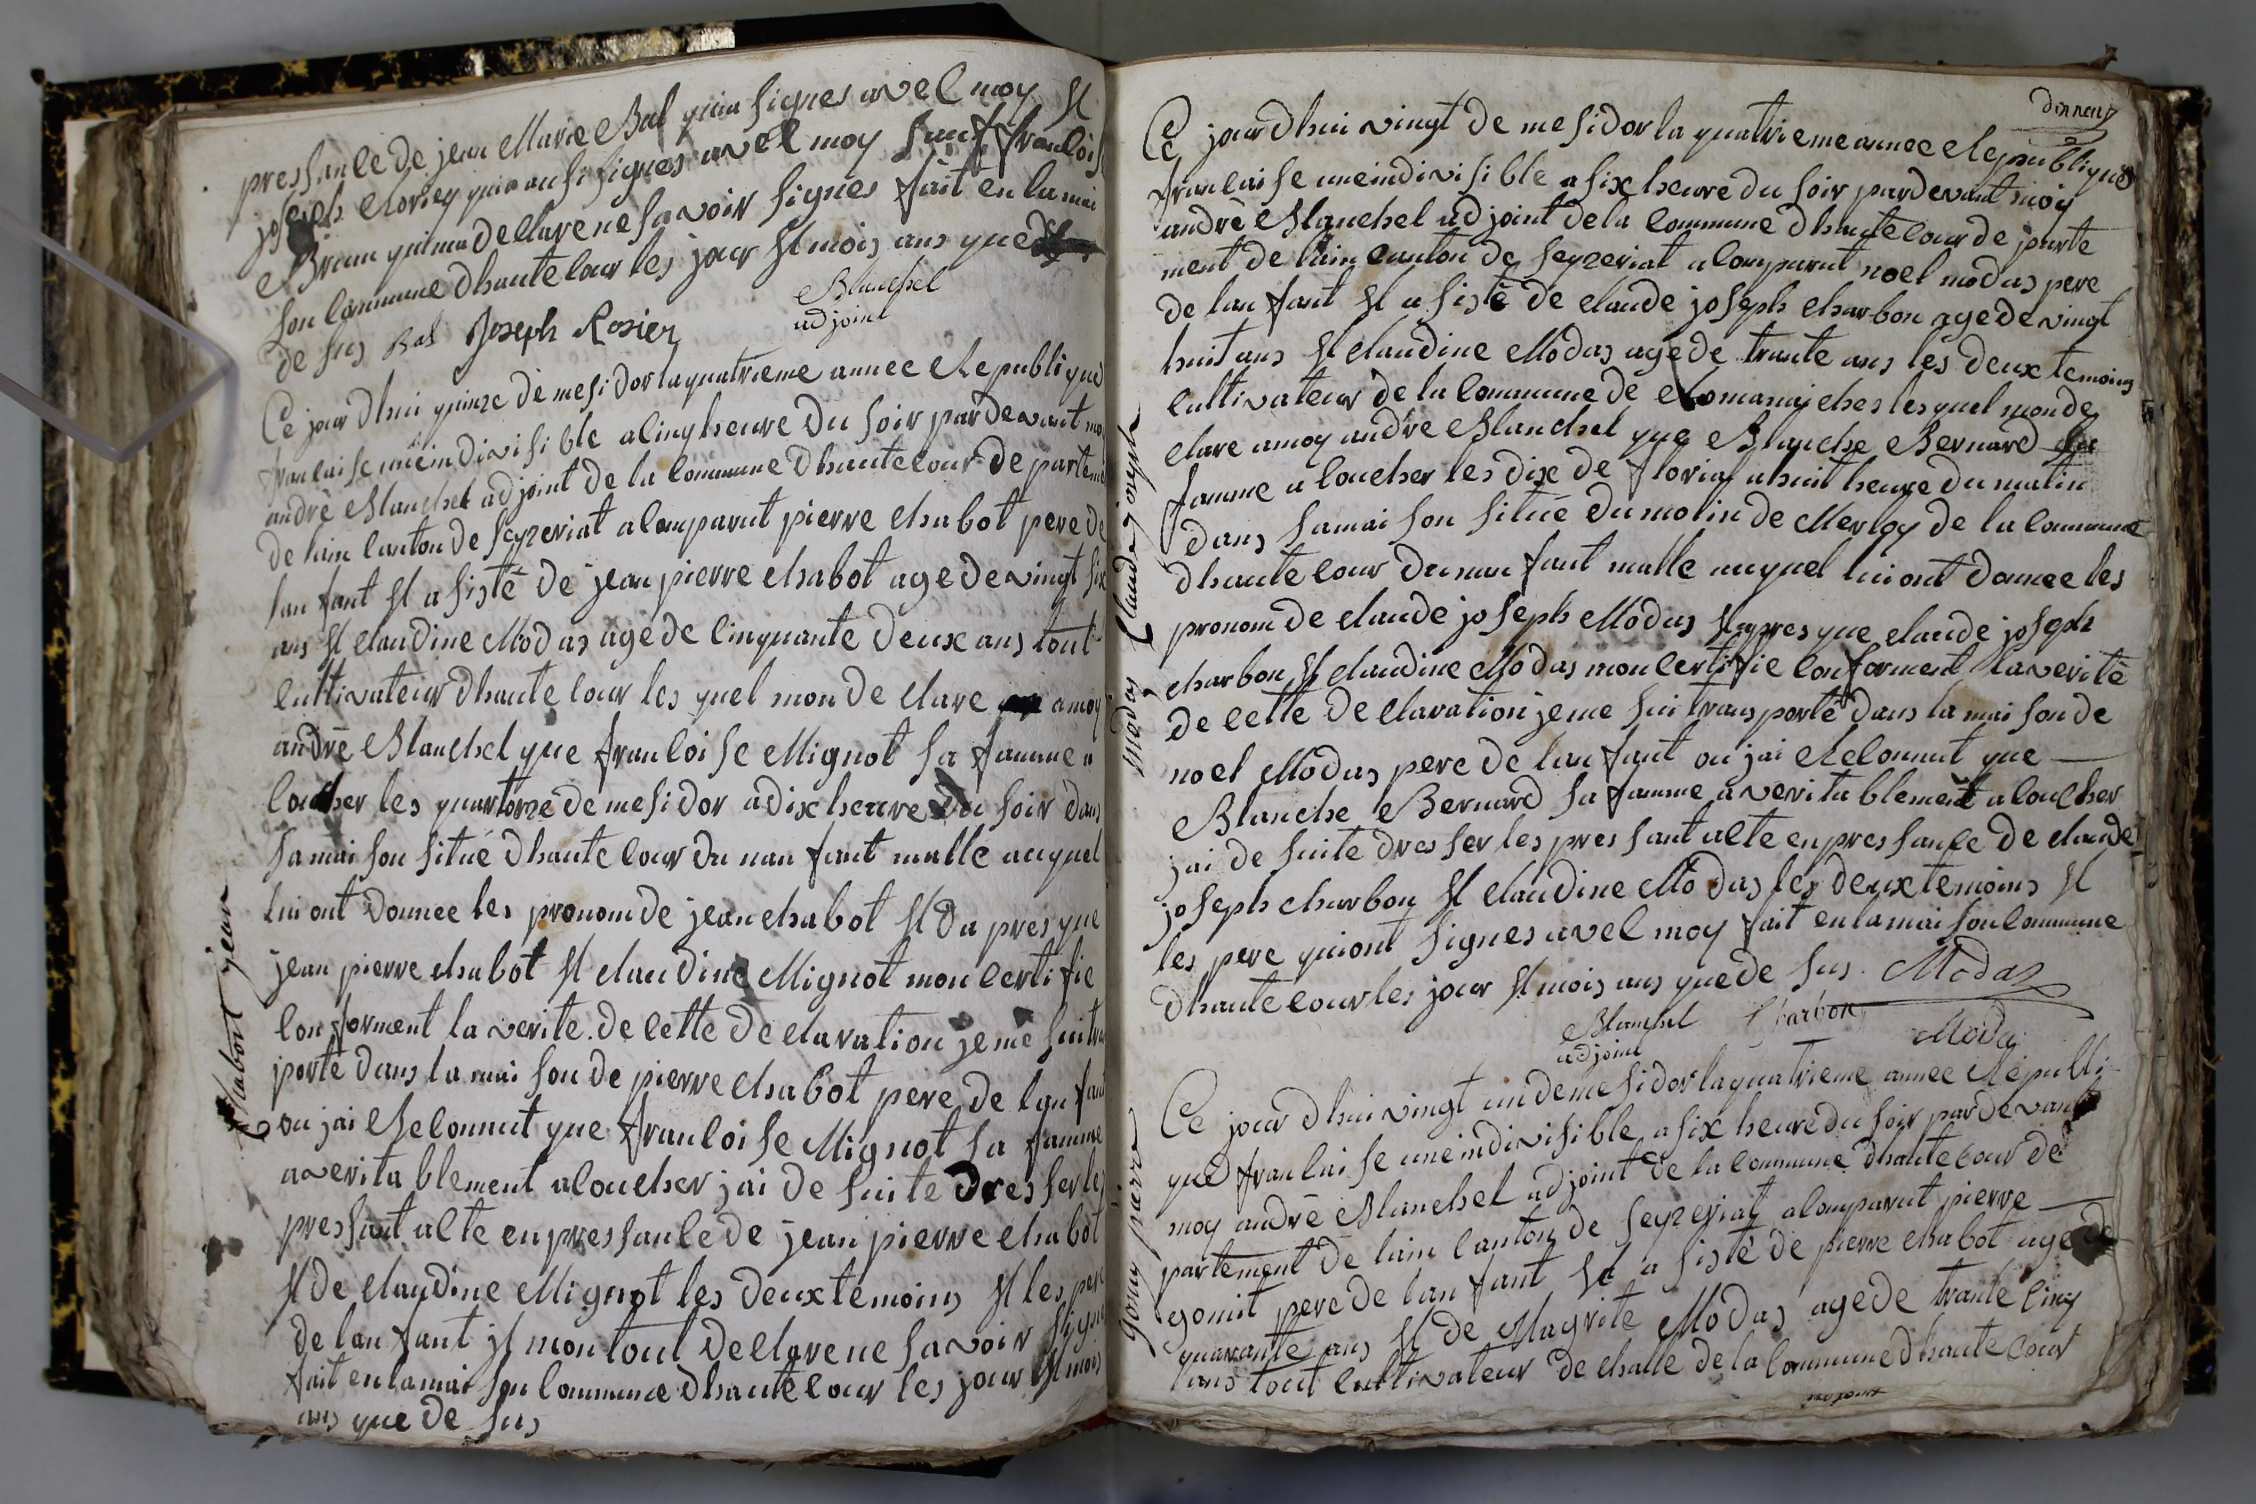 pressance de jean Marie Bal quia signes avec moy et
joseph Rorier quia ausi signes avec moy sauf francois
Brun quima declare ne savoir signes fait en la mai
son commune dhautecour les jour et mois ans que
de sus Bal Joseph Rosier
Blanchet
adjoint
Ce jour dhui quinze de mesidor la quatrieme annee Republique
francaise uneindivisible a cinq heure du soir pardevant
andré Blanchet adjoint de la commune dhautecour de parteme
de lain canton de seyzeriat a comparut pierre chabot pere de
lanfant et asisté de jean pierre chabot age de vingt six
ans et claudine Modas age de cinquante deux ans tout
cultivateur dhautecour les quel mon de clare amoy
andré Blanchet que francoise Mignot sa famme a
coucher les quartorze de mesidor a dix heure du soir dans
sa maison situé dhautecour du nan fant malle auquel
lui ont donnee les pronom de jean chabot et da pres que
jean pierre chabot et claudine Mignot mon certifie
conforment la verite de cette declaration je me sui trans
porté dans la maison de pierre chabot pere de lan fant
ou jai Reconnut que francoise Mignot sa famme
a veritablement a coucher jai de suite dresser les
pressant acte en pressance de jean pierre chabot
et de claudine Mignot les deux temoins et les pere
de lan fant et mon tout declare ne savoir signe
fait en la maison commune dhautecour les jour et mois
ans que de sus
Chabot jean
donneuz
Ce jour dhui vingt de mesidor la quatrieme annee Republique
francaise uneindivisible a six heure du soir pardevant moy
andré Blanchet adjoint de la commune dhautecour de parte
ment de lain canton de seyzeriat a comparut noel modas pere
de lan fant et asisté de claude joseph charbon age de vingt
huit ans et claudine Modas age de trante ans les deux temoins
cultivateur de la commune de Romaneches les quel mon de
clare amoy andré Blanchet que Blanche Bernard
famme a coucher les dix de florial a huit heure du matin
dans sa maison situé du molin de Merloy de la commune
dhautecour du nan fant malle auquel lui ont donnee les
pronom de claude joseph Modas et apres que claude joseph
charbon et claudine Modas mon certifie conforment la verité
de cette declaration je me sui transporté dans la maison de
noel Modas pere de lan fant ou jai Reconnut que
Blanche Bernard sa famme a veritablement a coucher
jai de suite dresser les pressant acte en pressance de claude
joseph charbon et claudine Modas les deux temoins et
les pere qui ont signes avec moy fait en la maison commune
dhautecour les jour et mois ans que de sus. Modas
Blanchet Charbon
adjoint Moda
Modas Claude joseph
Ce jour dhui vingt un de mesidor la quatrieme annee Republi
que francaise uneindivisible a six heure du soir pardevant
moy andré Blanchet adjoint de la commune dhautecour de
partement de lain canton de seyzeriat a comparut pierre
gomit pere de lan fant et a sisté de pierre chabot age de
quarante ans et de Magrite Modas age de trante cinq
ans tout cultivateur de challe de la commune dhautecour